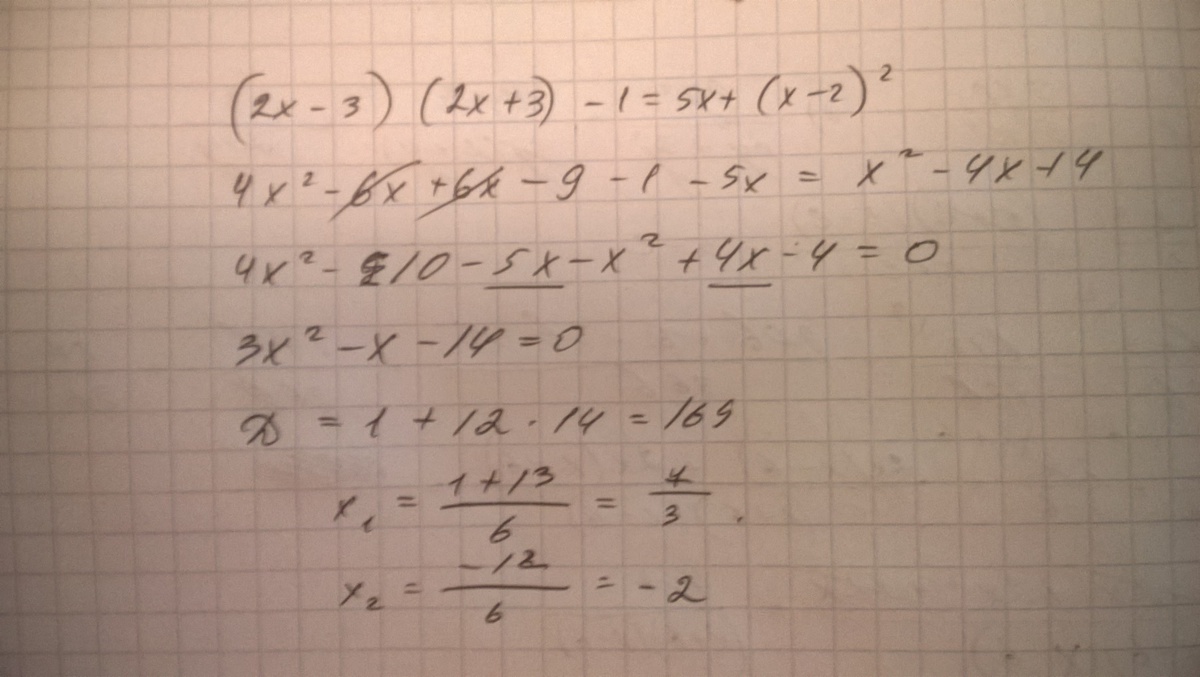 (2x - 3) (2x + 3) - 1 = 5x + (x - 2)²
4x² - 6x + 6x - 9 - 1 - 5x = x² - 4x + 4
4x² - 10 - 5x - x² + 4x - 4 = 0
3x² - x - 14 = 0
D = 1 + 12 · 14 = 169
x₁ = (1 + 13)/6 = 7/3.
x₂ = -12/6 = -2